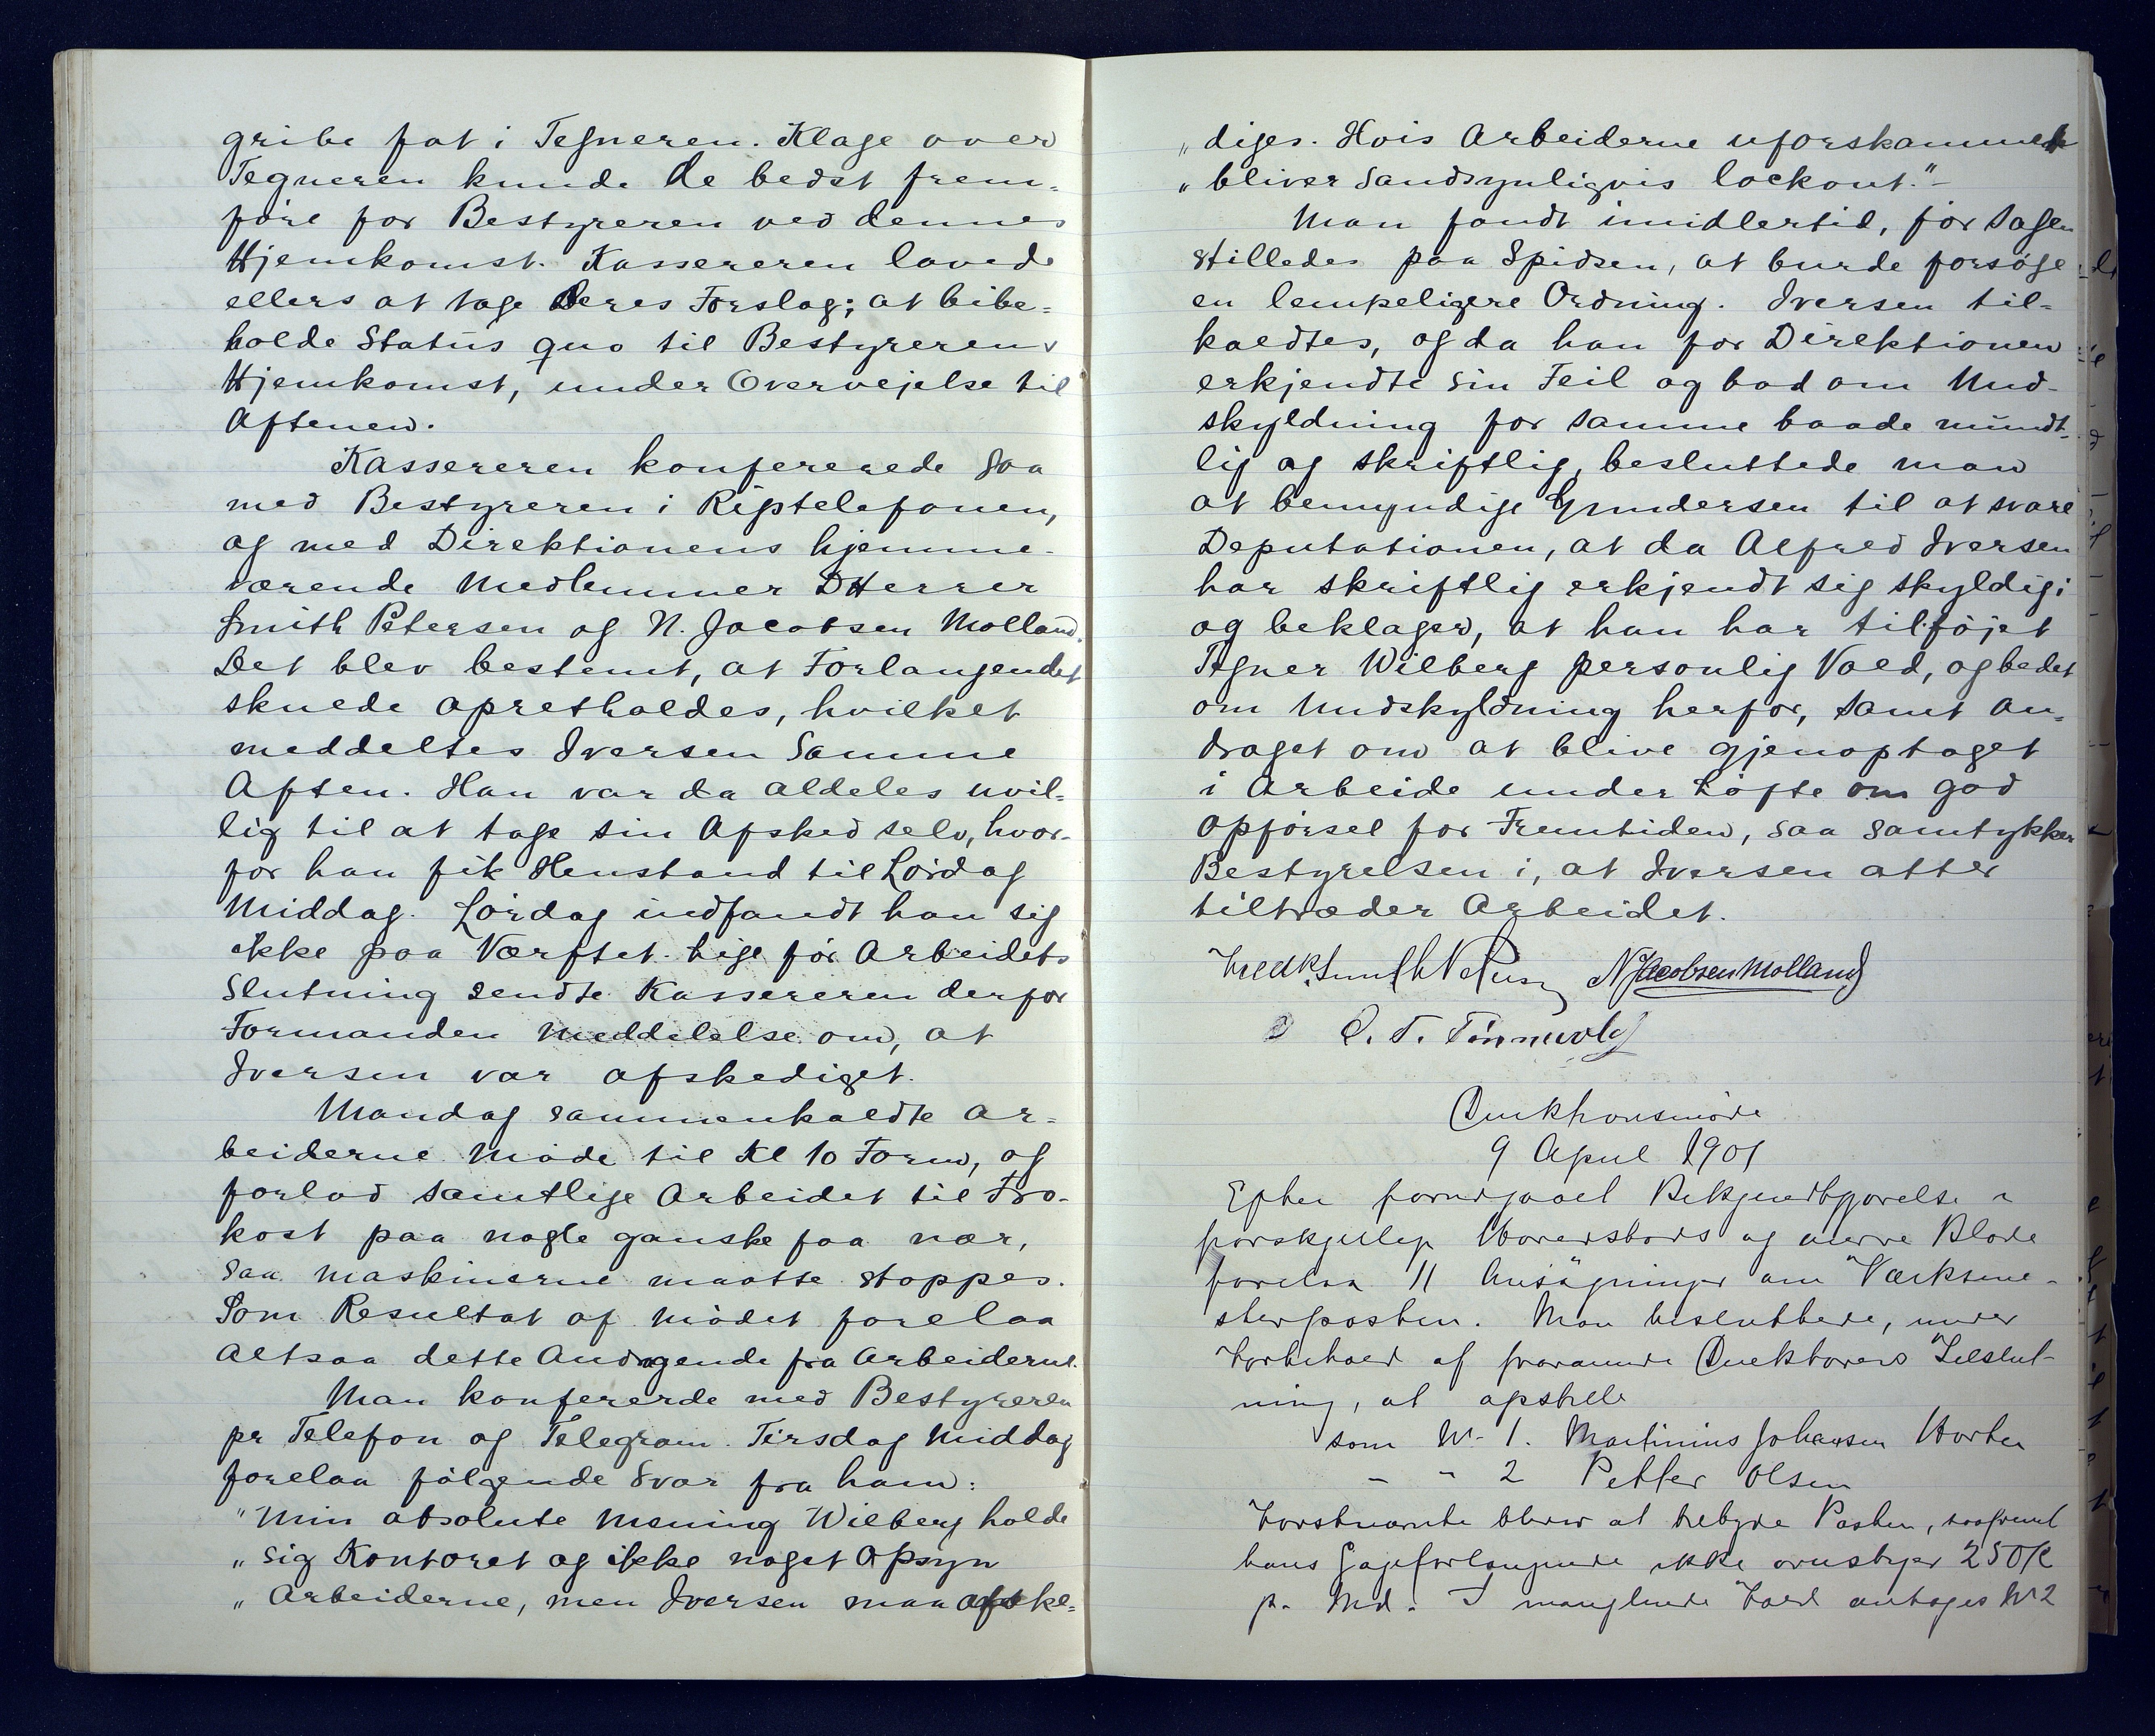 gribe fat i Tegneren. Klage over
Tegneren kunde de bedst frem-
føre for Bestyreren ved dennes
Hjemkomst. Kassereren lovede
ellers at tage deres Forslag; at bibe-
holde Status quo til Bestyrerens
Hjemkomst, under Overvejelse til
Aftenen.
Kassereren konfererede saa
med Bestyreren i Rigstelefonen,
og med Direktionens hjemme-
værende Medlemmer DHerrer
Smith Petersen og N. Jacobsen Molland.
Det blev bestemt, at Forlangendet
skulde opretholdes, hvilket
meddeltes Iversen samme
Aften. Han var da aldeles uvil-
lig til at tage sin Afsked selv, hvor-
for han fik Henstand til Lørdag
Middag. Lørdag indfandt han sig
ikke paa Værftet. Lige før Arbeidets
Slutning sendte Kassereren derfor
Formanden Meddelelse om, at
Iversen var afskediget.
Mandag sammenkaldte Ar-
beiderne Møde til Kl 10 Form, og
forlod samtlige Arbeidet til Fro-
kost paa nogle ganske faa nær,
saa Maskinerne maatte stoppes.
Som Resultat af Mødet forelaa
altsaa dette Andragende fra Arbeiderne.
Man konfererde med Bestyreren
pr Telefon og Telegram. Tirsdag Middag
forelaa følgende Svar fra ham:
"Min absolute Mening Wilberg holde
"sig Kontoret og ikke noget Opsyn
"Arbeiderne, men Iversen maa afske-
"diges. Hvis Arbeiderne uforskammede
"bliver sandsynligvis lockout."-
Man fandt imidlertid, før Sagen
stilledes paa Spidsen, at burde forsøge
en lempeligere Ordning. Iversen til-
kaldtes, og da han for Direktionen
erkjendte sin Feil og bad om Und-
skyldning for samme baade mundt-
lig og skriftlig, besluttede man
at bemyndige Gundersen til at svare
Deputationen, at da Alfred Iversen
har skriftlig erkjendt sig skyldig i
og beklager, at han har tilføjet
Tegner Wilberg personlig Vold, og bedet
om Undskyldning herfor, samt an-
draget om at blive gjenoptaget
i Arbeide under Løfte om god
Opførsel for Fremtiden, saa samtykker
Bestyrelsen i, at Iversen atter
tiltræder Arbeidet.
Fredk Smith Petersen N Jacobsen Molland
O. T. Tønnevold
Direktionsmøde
9 April 1901
Efter forudgaaet Bekjendtgjørelse i
forskjellige Hovedstads og andre Blade
forelaa 11 Ansøgninger om Værksme-
sterposten. Man besluttede, under
Forbehold af fraværende Direktørers Tilslut-
ning, at opstille
som No 1. Martinius Johansen Horten
- " 2 Petter Olsen
Førstnævnte bliver at tilbyde Posten, saafremt
hans Gageforlangende ikke overstiger 250 K
pr. Md. I manglende Fald antages No 2